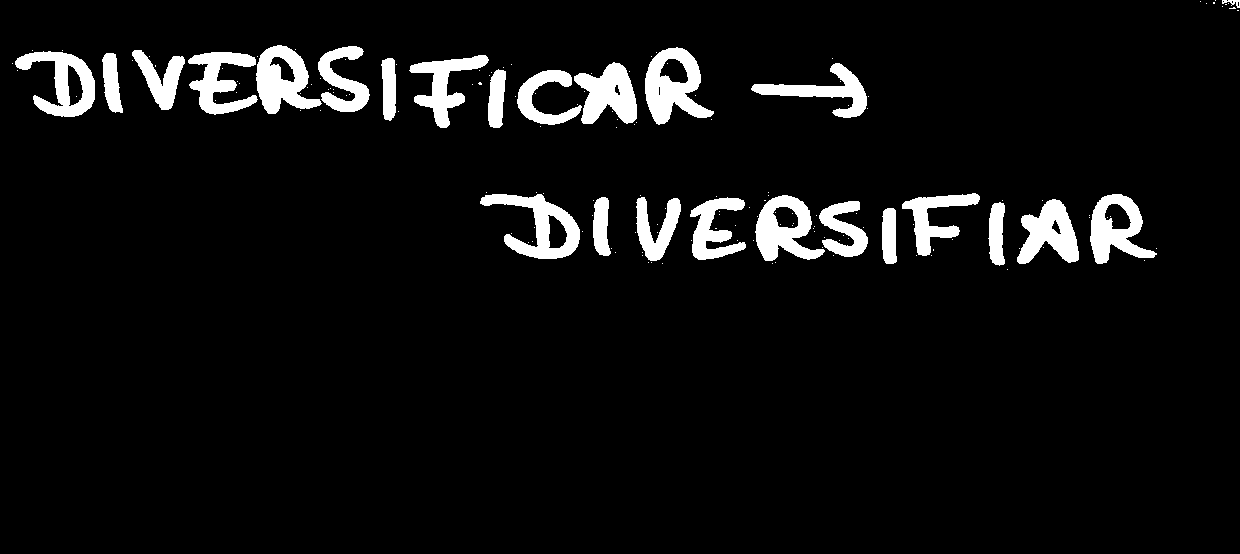 DIVERSIFICAR →
DIVERSIFIAR